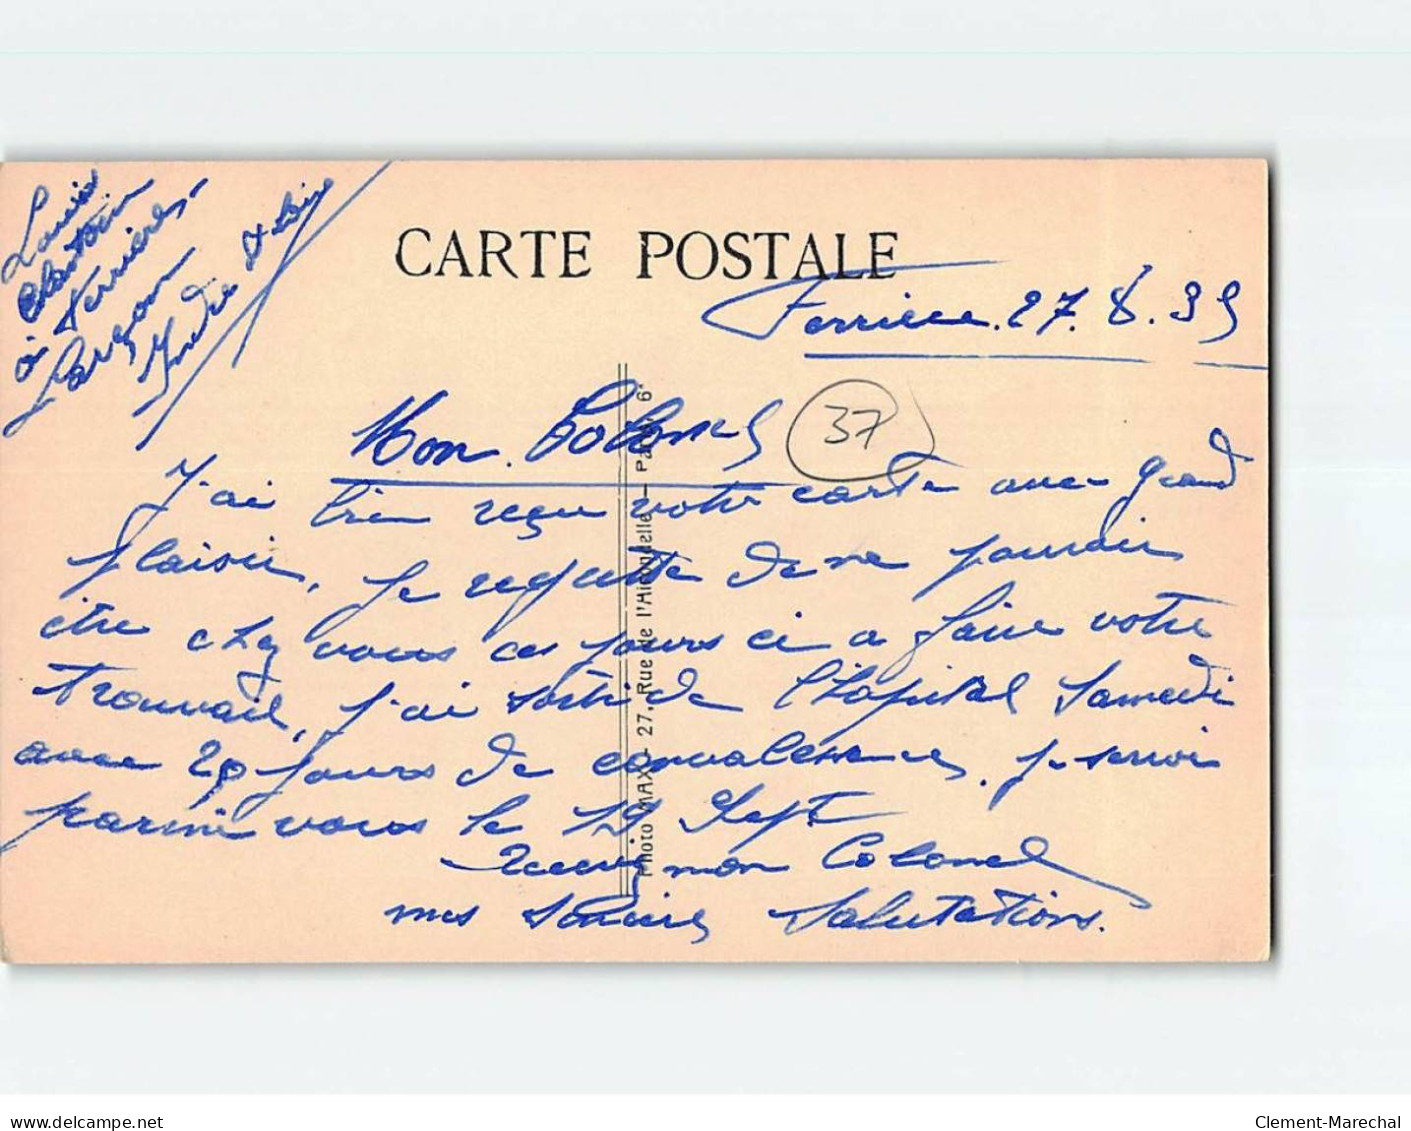 CARTE POSTALE
Louis
à Ferrière
Larçon
Indre & Loire
Ferrière. 27. 8. 39
Mon Colonel
37
J'ai bien reçu votre carte avec grand
plaisir, je regrette de ne pouvoir
être chez vous ces jours ci a faire votre
trouvail, j'ai sorti de l'hôpital Samedi
avec 20 jours de convalessence, je serroi
parmi vous le 19 Sept
recevez mon Colonel
mes sincères Salutations.
Photo MAX - 27, Rue de l'Hirondelle - Paris 6e
Clement-Marechal
www.delcampe.net